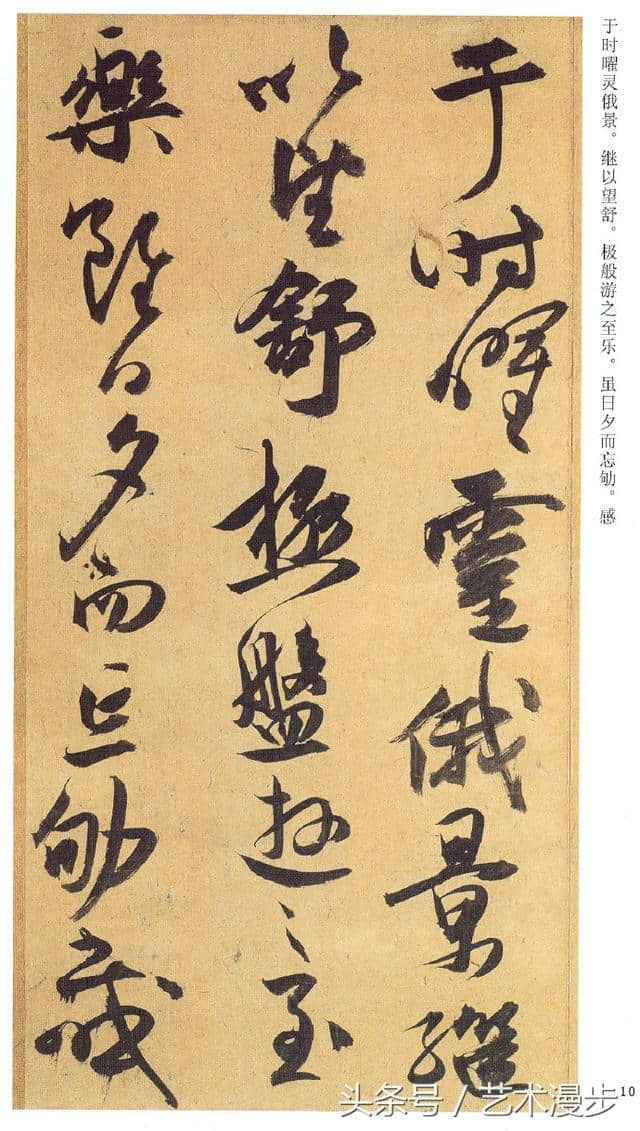 于时曜灵俄景。继以望舒。极般游之至乐。虽日夕而忘劬。感
于時曜靈俄景繼
以望舒極盤遊之至
樂雖日夕而忘劬感
10
头条号 / 艺术漫步